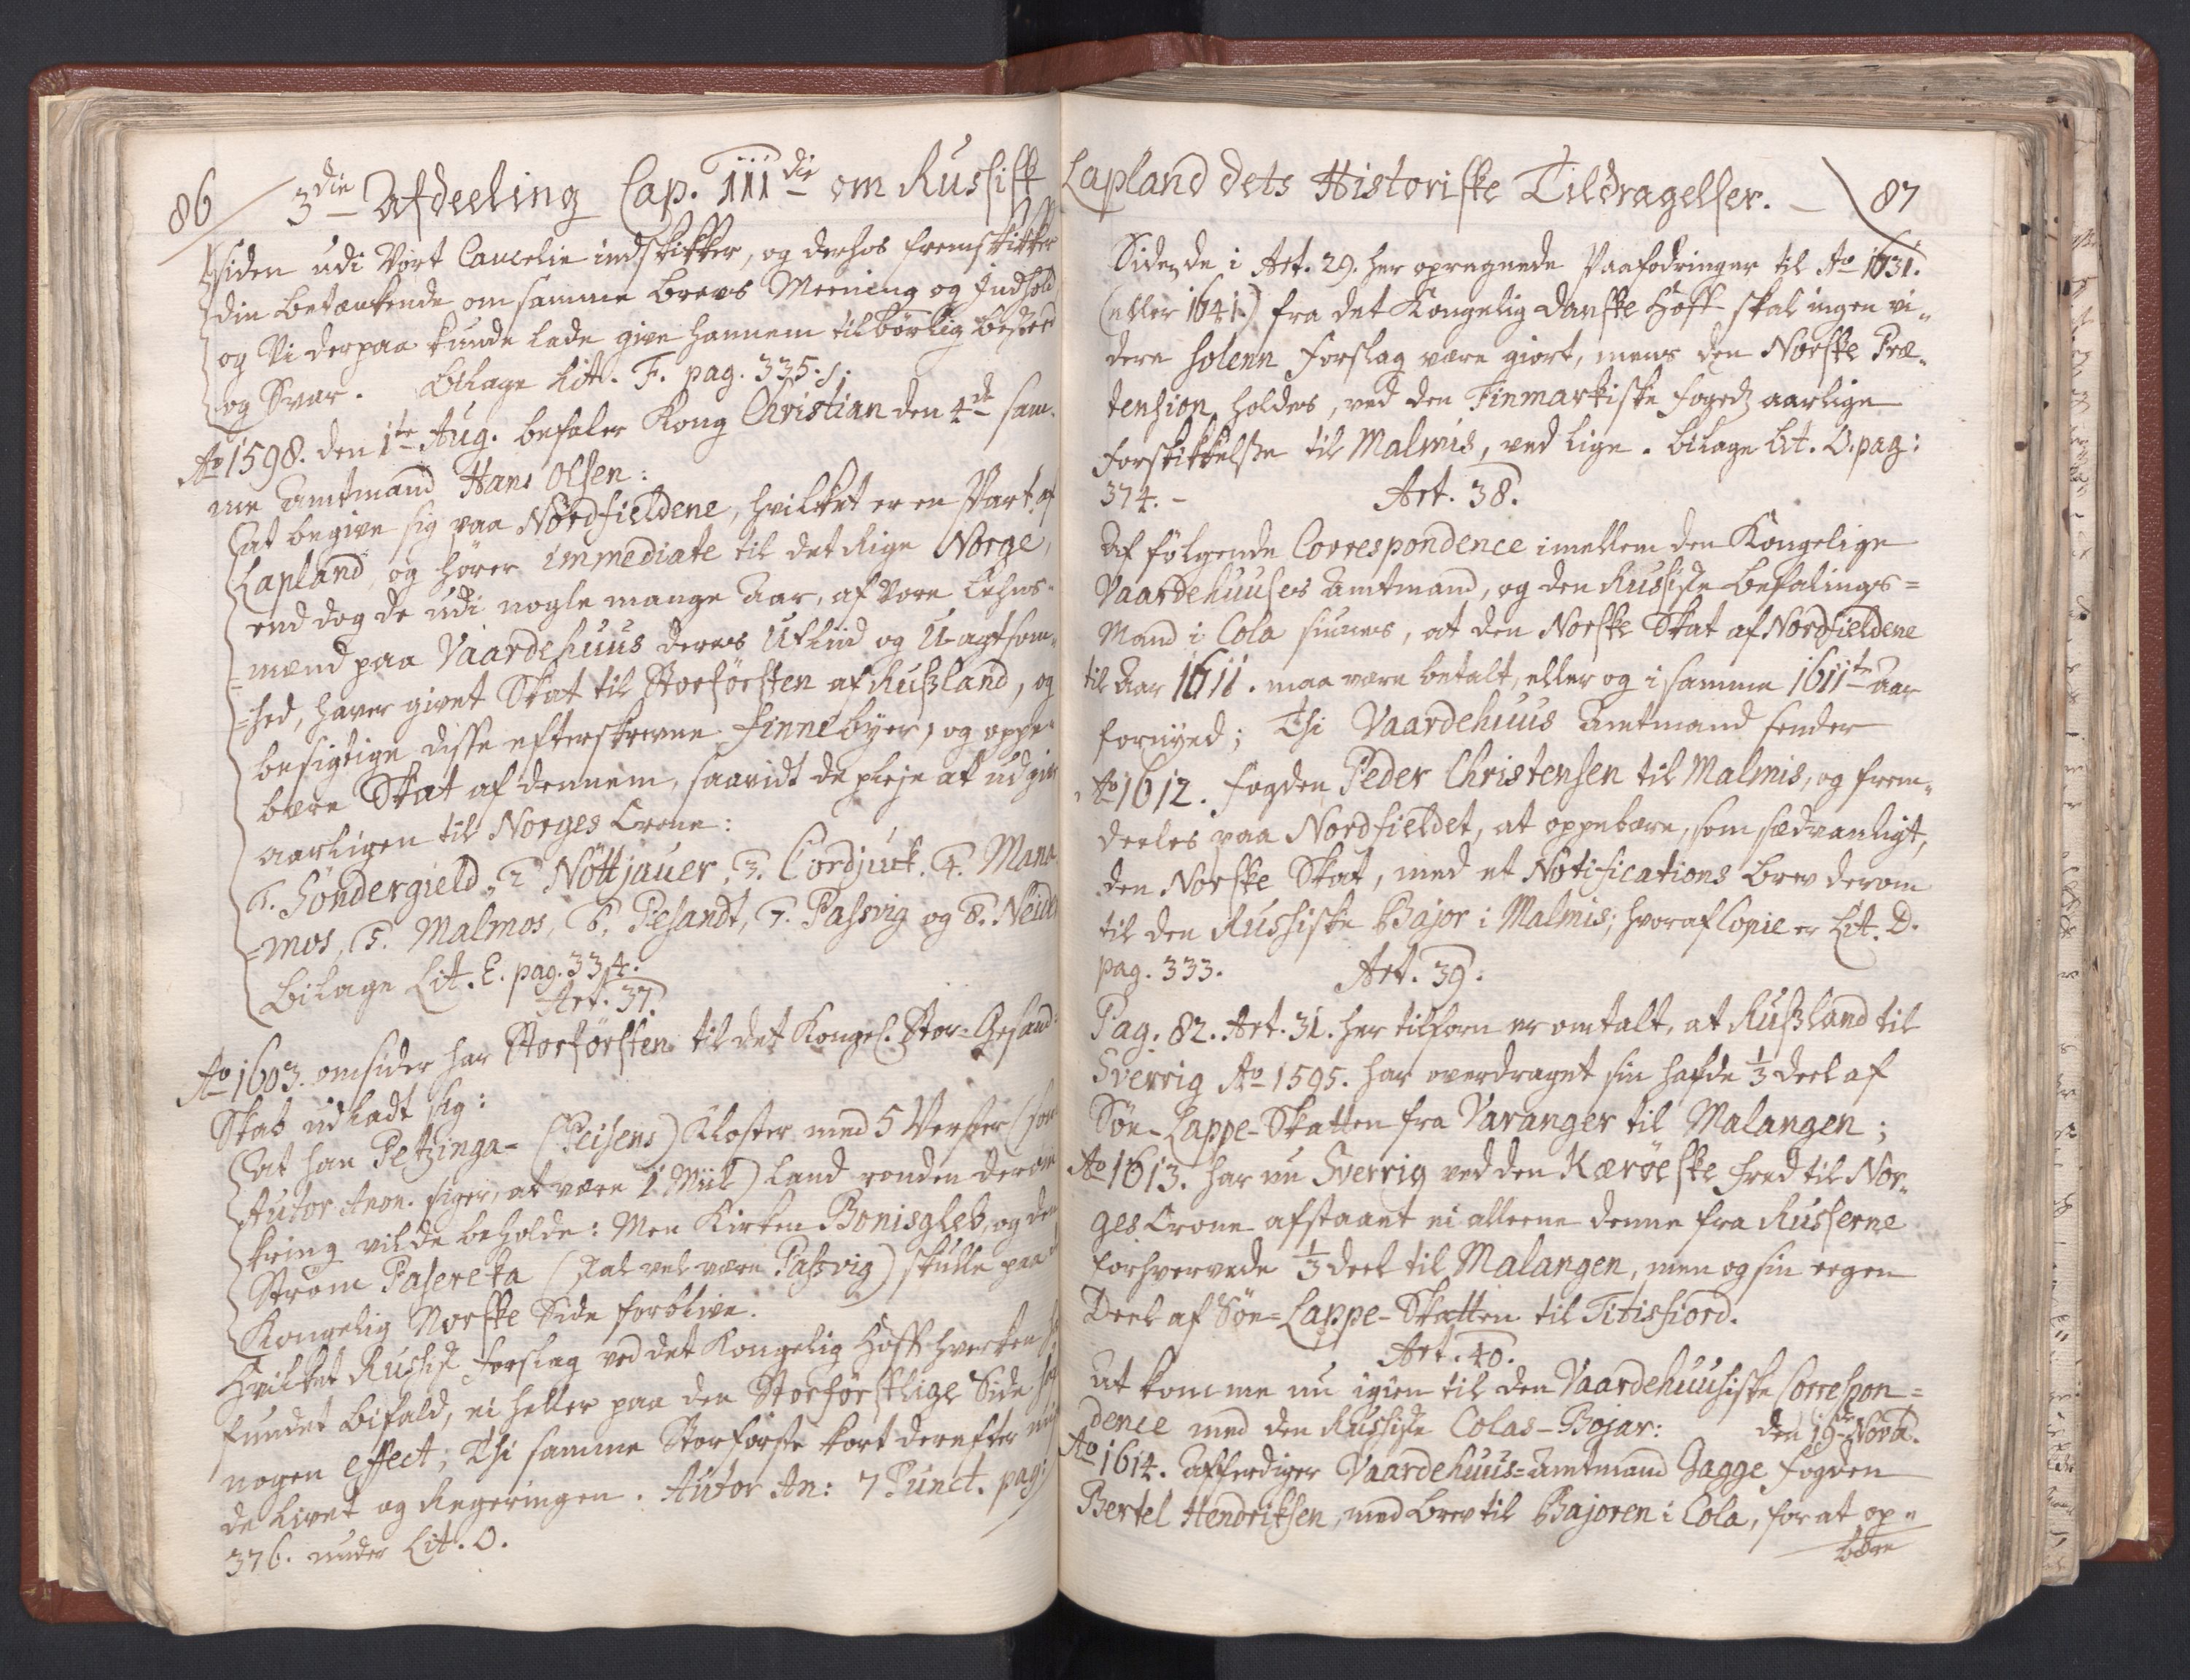 86
3die Afdeeling Cap. IIIdie om Russisk
siden udi Vort Cancelie indskikker, og derhos fremskikker
din betænkende om samme brevs Meening og Indhold
og Vi derpaa kunde lade give hannem tilbörlig besked
og Svar. Bilage Lit. F. pag. 335.
Ao 1598. den 1te Aug. befaler Kong Christian den 4de sam¬
me Amtmand Hans Olsen:
at begive sig paa Nordfieldene, hvilket er en Part af
Lapland, og hörer immediate til det Rige Norge,
end dog de udi nogle mange Aar, af Vore Lehns¬
=mænd paa Vaardehuus deres Uflid og U-agtsom¬
=hed, haver givet Skat til Storförsten af Rußland, og
besigtige disse efterskrevne Finnebyer, og oppe¬
bære Skat af dennem, saavidt de pleje at udgive
aarligen til Norges Crone:
1. Söndergield, 2. Nöttjauer, 3. Cordjuck. 4. Mana¬
=mos, 5. Malmos, 6. Pesandt, 7. Passvig og 8. Neiden
Bilage Lit. E. pag. 334.
Art. 37.
Ao 1603. omsider har Storförsten til det Kongel. Stor-Gesand¬
Skab udladt sig:
at han Petzinga- (Peisens) Kloster med 5 Verster (som
Autor Anon. siger, at være 1 Miil) Land runden derom
kring vilde beholde: Men Kirken Bonisgleb, og den
Ström Pasereka (skal vel være Passvig) skulle paa
Kongelig Norske Side forblive.
Hvilket Russisk forslag ved det Kongelig Hoff hverken
fundet bifald, ei heller paa den Storförstlige Side
nogen effect; Thi samme Storförste kort derefter
de Livet og Regeringen. Autor An: 7 Punct. pag:
376. under Lit. O.
Lapland dets Historiske Tildragelser. 87
Siden de i Art. 29. her opregnede Paafodringer til Ao 1631.
(eller 1641.) fra det Kongelig Danske Hoff skal ingen vi¬
dere solenn forslag være giort, mens den Norske Præ¬
tension holdes, ved den Finmarkiske Fogeds aarlige
forskikkelse til Malmis, ved lige. Bilage Lit. O. pag:
374. -
Art. 38.
Af fölgende Correspondence imellem den Kongelige
Vaardehuuses Amtmand, og den Russiske befalings=
Mand i Cola siunes, at den Norske Skat af Nordfieldene
til Aar 1611. maa være betalt, eller og i samme 1611te Aar
fornyed; Thi Vaardehuus Amtmand sender
Ao 1612. Fogden Peder Christensen til Malmis, og frem¬
deeles paa Nordfieldet, at oppebære, som sædvanligt,
den Norske Skat, med et Notifications brev derom
til den Russiske Bajor i Malmis; hvoraf Copie er Lit. D.
pag. 333.
Art. 39.
Pag. 82. Art. 31. her tilforn er omtalt, at Rußland til
Sverrig Ao 1595. har overdraget sin hafde 1/3 deel af
Söe-Lappe-Skatten fra Varanger til Malangen;
Ao 1613. har nu Sverrig ved den Kæröeske Fred til Nor¬
ges Crone afstaaet ei alleene denne fra Russerne
forhvervede 1/3 deel til Malangen, men og sin eegen
Deel af Söe-Lappe-Skatten til Titisfiord.
Art. 40.
At komme nu igien til den Vaardehuusiske Correspon=
dence med den Russiske Colas-Bojar: den 19de Novb.
Ao 1614. affærdiger Vaardehuus-Amtmand Jagge Fogden
Bertel Hendriksen, med brev til Bajoren i Cola, for at op¬
bære